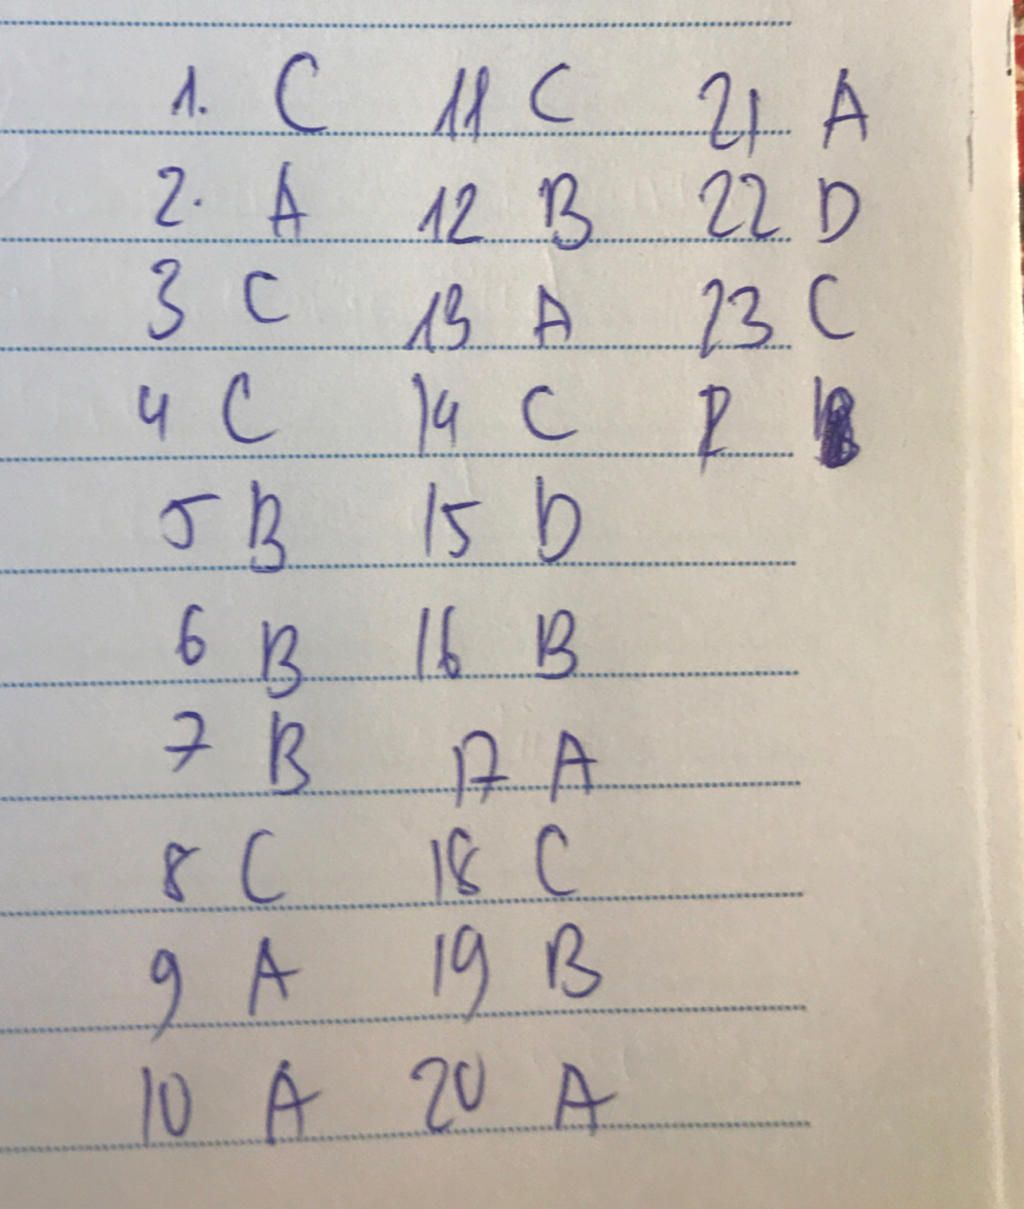 1. C 11 C 21 A
2. A 12 B 22 D
3 C 13 A 23 C
4 C 14 C
5 B 15 D
6 B 16 B
7 B 17 A
8 C 18 C
9 A 19 B
10 A 20 A